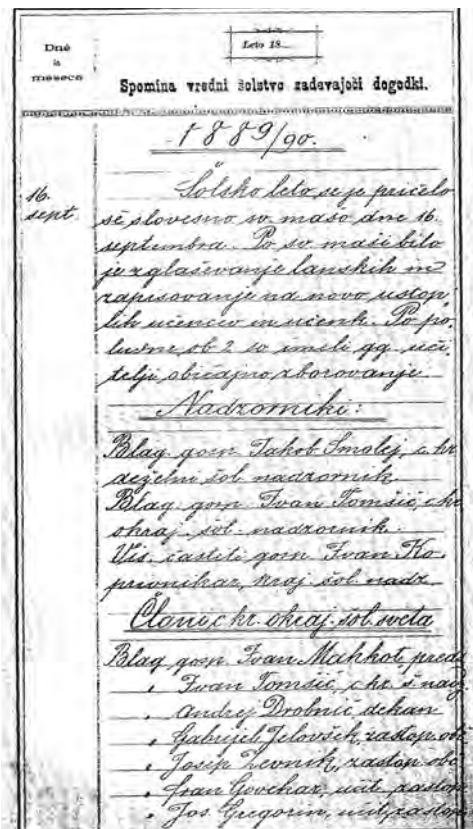 Dné
in
meseca
Leto 18
Spomina vredni šolstvo zadevajoči dogodki.
1889/90.
16.
sept.
Šolsko leto se je pričelo
sè slovesno sv. mašo dne 16.
septembra. Po sv. maši bilo
je zglaševanje lanskih in
zapisovanje na novo ustop-
lih učencev in učenk. Po po-
ludne ob 2 so imeli gg. uči-
telji običajno zborovanje.
Nadzorniki:
Blag. gosp. Jakob Smolej, c. kr.
deželni šol. nadzornik.
Blag. gosp. Ivan Tomšič, c. kr.
okraj. šol. nadzornik.
Vis. častiti gosp. Ivan Ko-
privnikar, kraj. šol. nadz.
Člani c. kr. okraj. šol. sveta
Blag. gosp. Ivan Mahkot, preds
" Ivan Tomšič, c. kr. š. nadz
" Andrej Drobnič dekan
" Gabrijel Jelovšek, zastop. obč
" Josip Levnik, zastop. obč
" Fran Govekar, učit. zastop
" Jos. Gregorin, učit. zastop